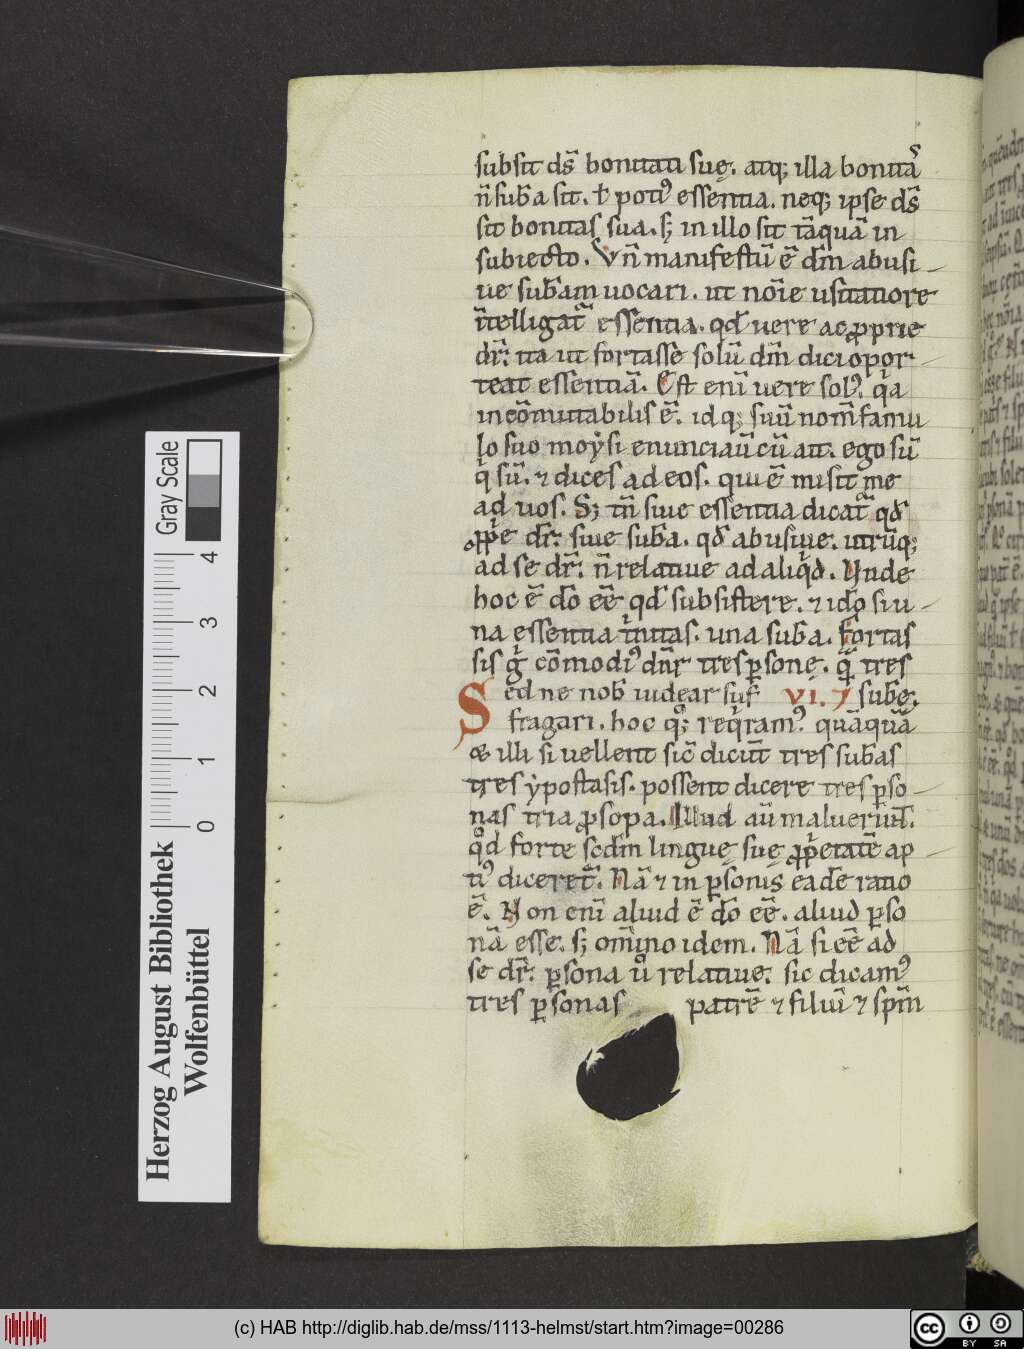 subsit ds̄ bonitati suę. atq; illa bonitas
n̄ sub̄a sit. ł poti᷒ essentia. neq; ipse ds̄
sit bonitas sua. s; in illo sit tāquā in
subiecto. Vn̄ manifestū ē dm̄ abusi
ue sub̄am uocari. ut noīe usitatiore
ītelligat̄ essentia. qd̄ uere ac ꝓprie
dr̄: ita ut fortasse solū dm̄ dici opor
teat essentiā. Est enī uere sol᷒. qͥa
incōmutabilis ē. idq; suū nom̄ famu
lo suo moẏsi enunciauī cū ait. ego sū
qͥ sū. ⁊ dices ad eos. qui ē misit me
ad uos. S; tn̄ siue essentia dicat̄ qd̄
ꝓpͥe dr̄: siue sub̄a. qd̄ abusiue. utrūq;
ad se dr̄. n̄ relatiue ad aliqͥd. Vnde
hoc ē dō ēē qd̄ subsistere. ⁊ idō si u
na essentia tͥnitas. una sub̄a. Fortas
sis gͥ cōmodi᷒ dn̄r tres ꝑsonę. qͣ̄ tres
Sed ne nob̄ uidear suf VI. 7 sub̄ę.
fragari. hoc qͦ; reqͥram᷒. quāquā
& illi si uellent sic̄ dicūt tres sub̄as
tres ẏpostasis. possent dicere tres ꝑso
nas tria ꝓsopa. Illud aū maluerūt.
qͦd forte scdm̄ linguę suę ꝓpͥetatē ap
ti᷒ diceret̄. Nā ⁊ in ꝑsonis eadē ratio
ē. Non enī aliud ē dō ēē. aliud ꝑso
nā esse. s; om̄ino idem. Nā si ēē ad
se dr̄: ꝑsona uͦ relatiue: sic dicam᷒
tres ꝑsonas patrē ⁊ filiū ⁊ spm̄
Gray Scale
0 1 2 3 4
Herzog August Bibliothek
Wolfenbüttel
(c) HAB http://diglib.hab.de/mss/1113-helmst/start.htm?image=00286
cc BY SA